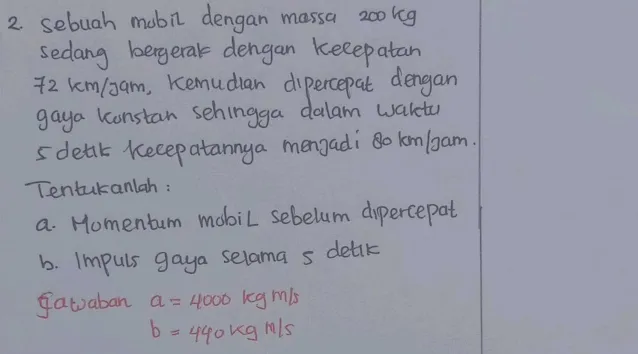 2. Sebuah mobil dengan massa 200 kg
sedang bergerak dengan kecepatan
72 km/jam, kemudian dipercepat dengan
gaya konstan sehingga dalam waktu
5 detik kecepatannya menjadi 80 km/jam.
Tentukanlah :
a. Momentum mobil sebelum dipercepat
b. Impuls gaya selama 5 detik
Jawaban a = 4000 kg m/s
b = 440 kg m/s